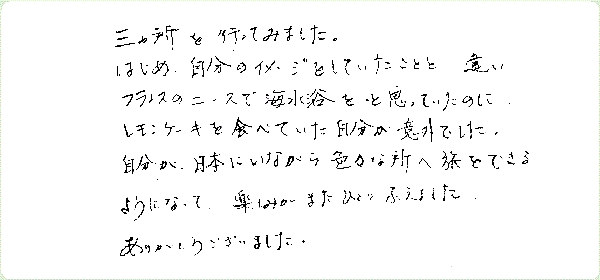 三ヵ所を行ってみました。
はじめ、自分のイメージをしていたことと違い
フランスのニースで海水浴をと思っていたのに、
レモンケーキを食べていた自分が意外でした。
自分が、日本にいながら色々な所へ旅をできる
ようになって、楽しみがまたひとつふえました。
ありがとうございました。